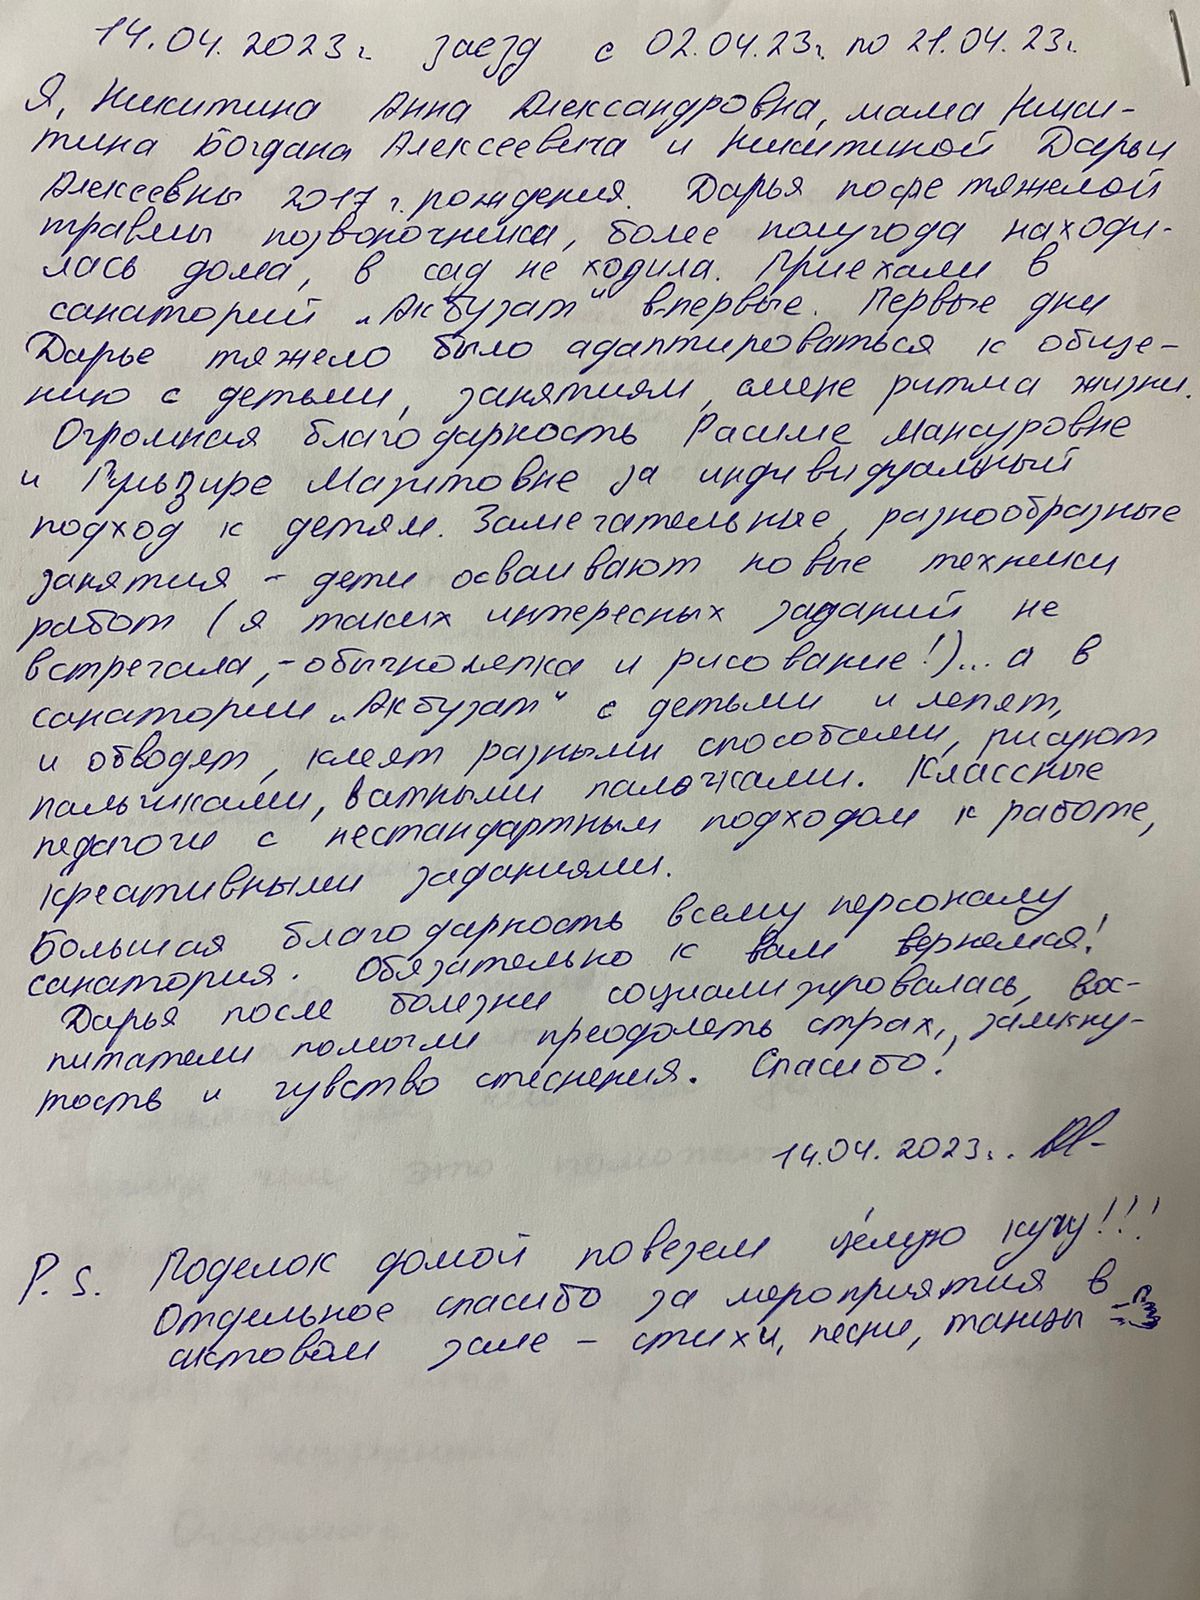 14.04.2023г. заезд с 02.04.23г. по 21.04.23г.
Я, Никитина Анна Александровна, мама Ники-
тина Богдана Алексеевича и Никитиной Дарьи
Алексеевны 2017 г. рождения. Дарья после тяжелой
травмы позвоночника, более полугода находи-
лась дома, в сад не ходила. Приехали в
санаторий „Акбузат" впервые. Первые дни
Дарье тяжело было адаптироваться к обще-
нию с детьми, занятиям, смене ритма жизни.
Огромная благодарность Расиме Мансуровне
и Гульзире Маратовне за индивидуальный
подход к детям. Замечательные, разнообразные
занятия, - дети осваивают новые техники
работ (я таких интересных заданий не
встречала, - обычно лепка и рисование!)... а в
санатории „Акбузат" с детьми и лепят,
и обводят, клеят разными способами, рисуют
пальчиками, ватными палочками. Классные
педагоги с нестандартным подходом к работе,
креативными заданиями.
Большая благодарность всему персоналу
санатория. Обязательно к вам вернемся!
Дарья после болезни социализировалась, вос-
питатели помогли преодолеть страх, замкну-
тость и чувство стеснения. Спасибо!
14.04.2023г.
P.S. Поделок домой повезем целую кучу!!!
Отдельное спасибо за мероприятия в
актовом зале - стихи, песни, танцы